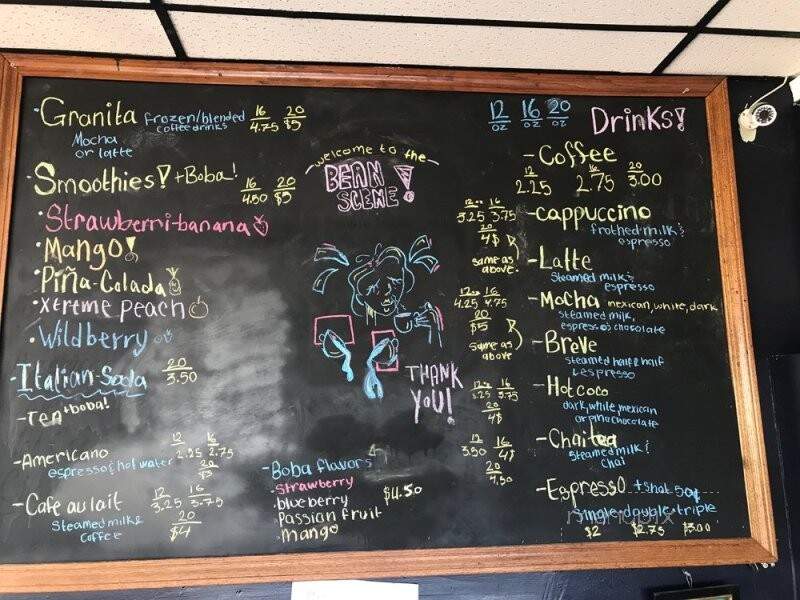 ·Granita frozen/blended
coffee drinks
16 20
4.75 $5
Mocha
or latte
·Smoothies! +Boba!
16 20
4.50 $5
·Strawberri-banana
·Mango!
·Piña-Colada
·Xtreme peach
·Wildberry
-Italian-Soda
20
3.50
-Tea +boba!
-Americano
espresso & hot water
12 16
2.25 2.75
20
$3
-Cafe au lait
Steamed milk &
coffee
12 16
3.25 3.75
20
$4
welcome to the
BEAN
SCENE!
THANK
YOU!
-Boba flavors
-Strawberry
-blueberry
-Passion fruit
-Mango
$4.50
12 16 20
oz oz oz
Drinks!
-Coffee
12 16 20
2.25 2.75 3.00
-cappuccino
frothed milk &
espresso
12 oz 16
3.25 3.75
20
4$
-Latte
Steamed milk &
espresso
same as
above.
-Mocha mexican, white, dark
steamed milk,
espresso & chocolate
12 oz 16
4.25 4.75
20
$5
-Breve
steamed half & half
& espresso
same as
above
-Hot coco
dark, white, mexican
or pinochocolate
12 oz 16
3.25 3.75
20
4$
-Chai tea
steamed milk &
chai
12 16
3.50 4$
20
4.50
-Espresso +shot 50¢
single-double-triple
$2 $2.75 $3.00